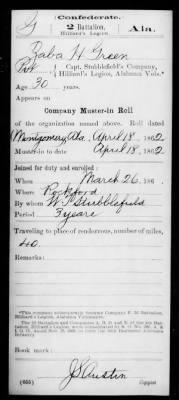 G Confederate.
2 Battalion, Hilliard's Legion, Ala.
Zaba H Green
Pvt, Capt. Stubblefield's Company,
Hilliard's Legion, Alabama Vols.*
Age 30 years.
Appears on
Company Muster-in Roll
of the organization named above. Roll dated
Montgomery Ala, April 18, 1862
Muster-in to date April 18, 1862
Joined for duty and enrolled:
When March 26, 186
Where Rockford
By whom W. H. Stubblefield
Period 3 years
Traveling to place of rendezvous, number of miles,
40.
Remarks:
*This company subsequently became Company
Hilliard's Legion, Alabama Volunteers.
Book mark:
J S Austin
(655) Copyist.